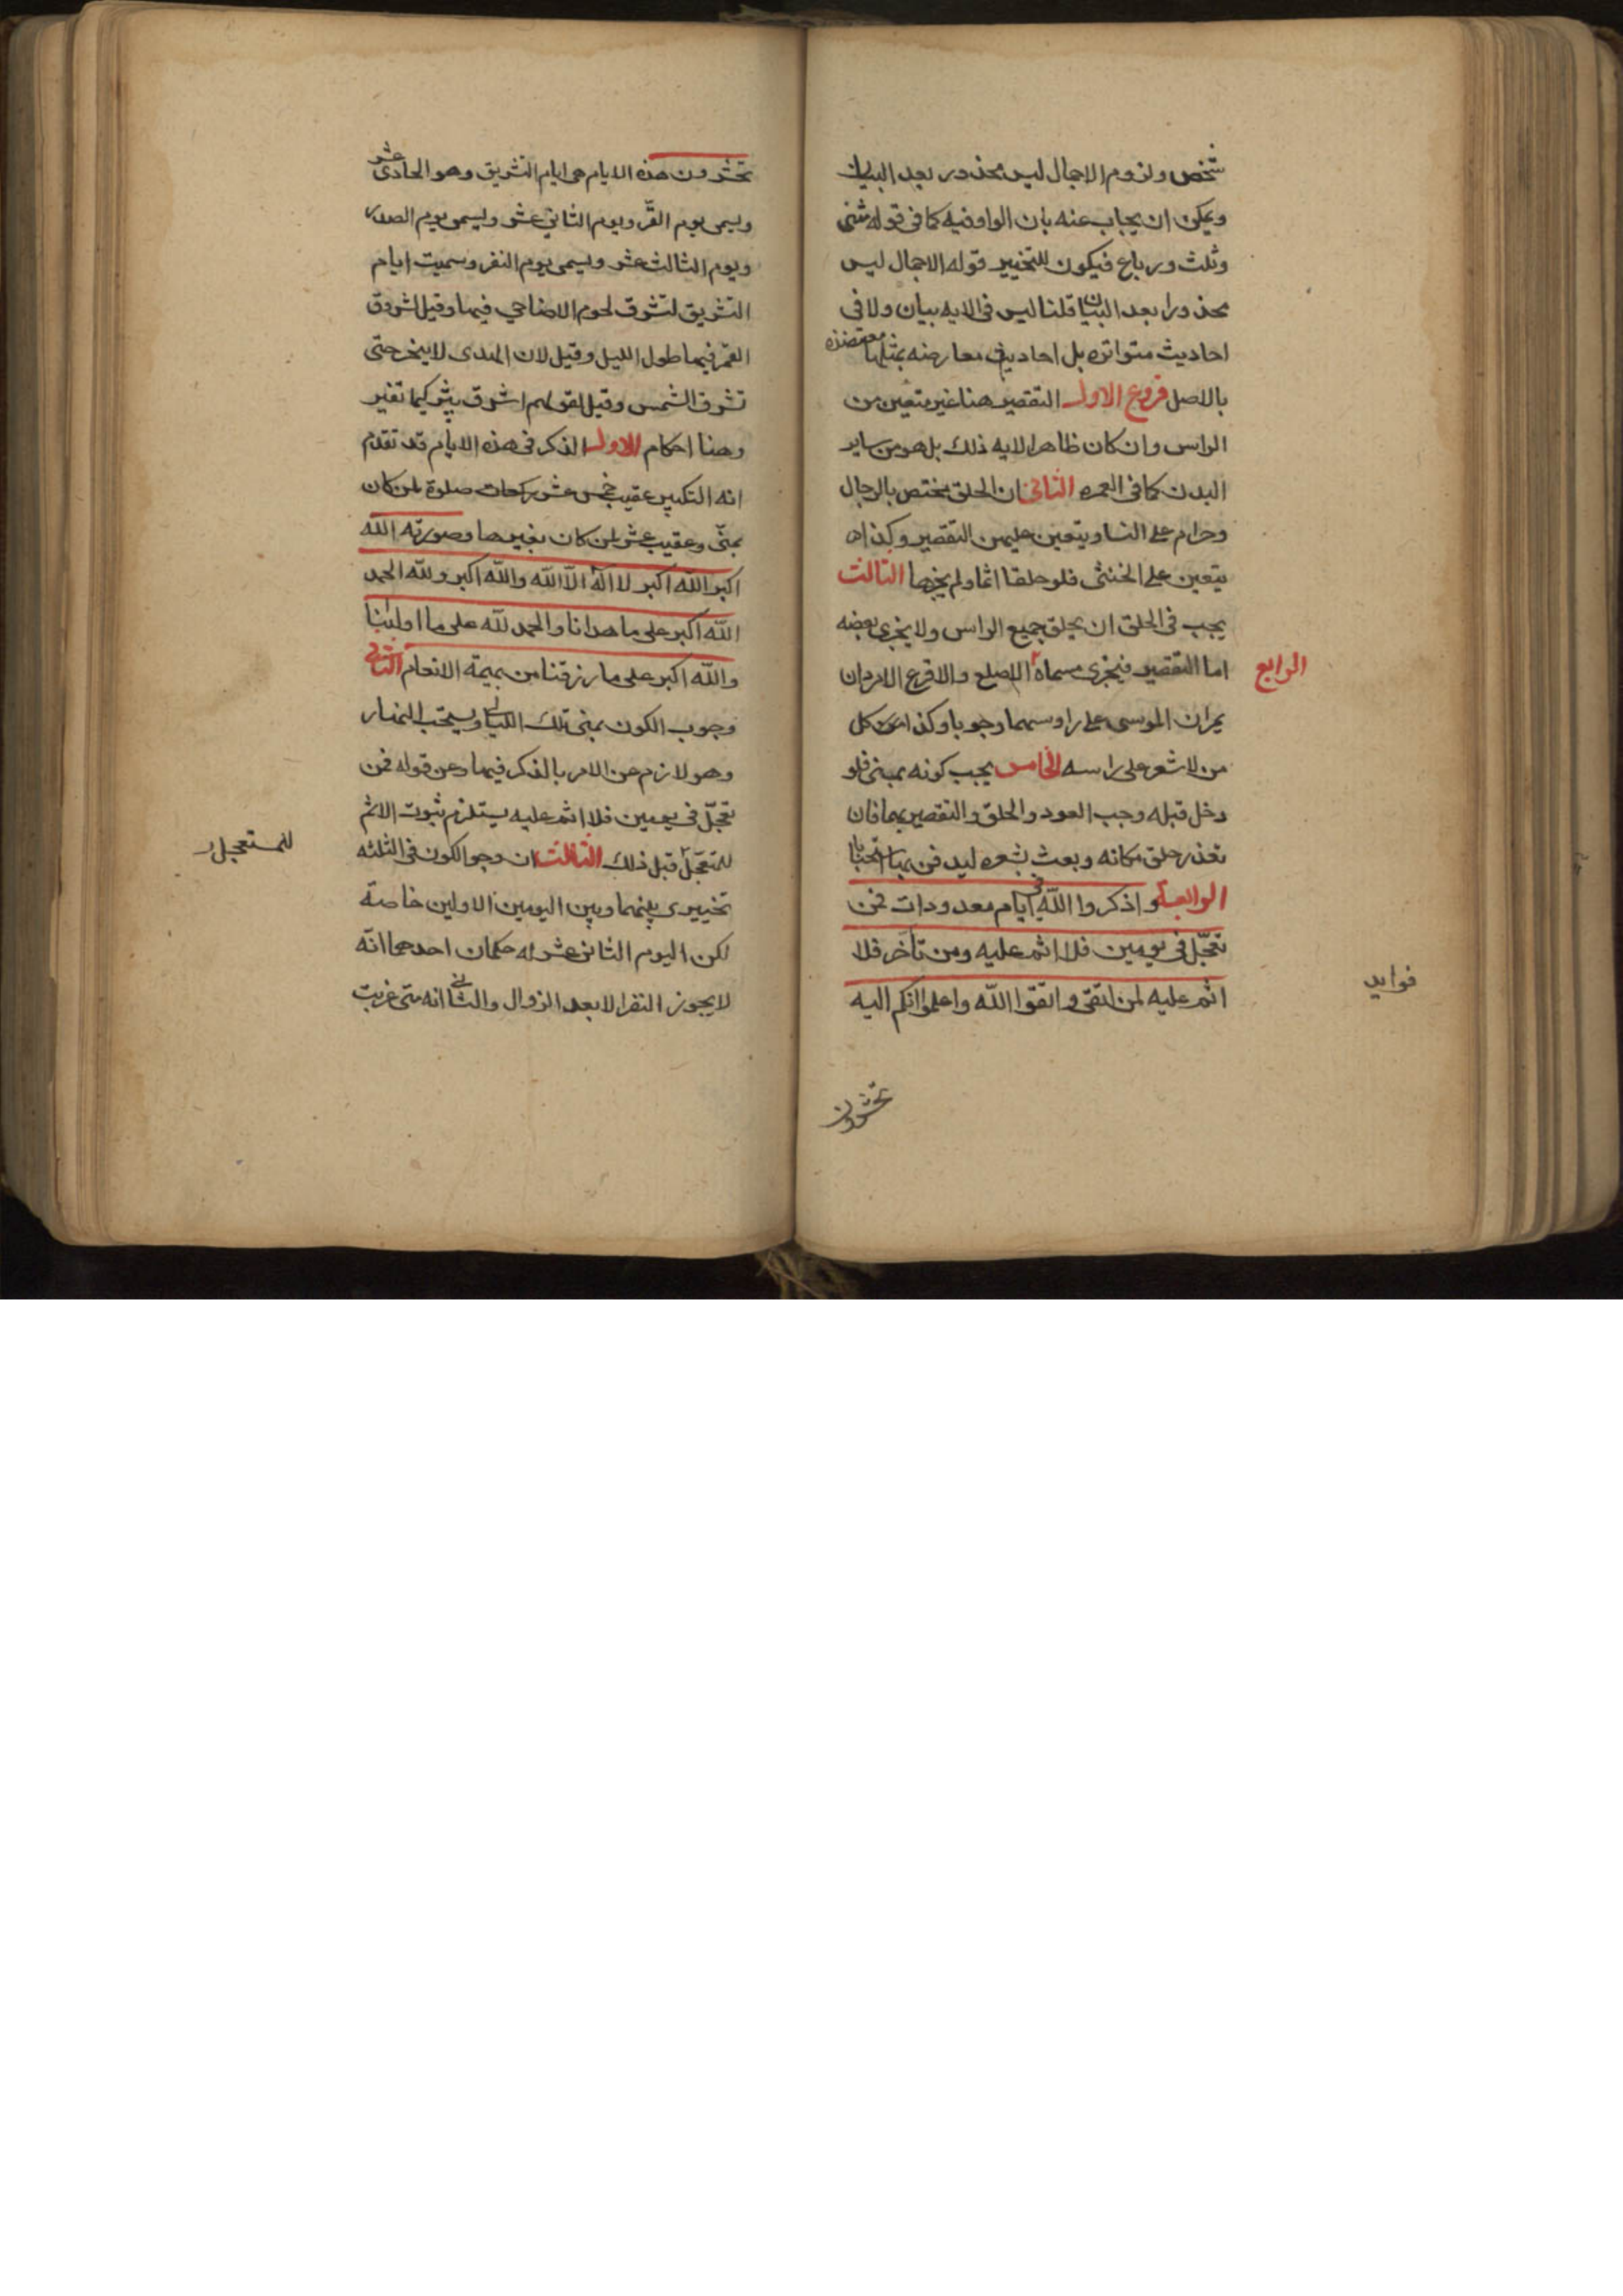 شخص ولزوم الاجمال ليس بمحذور بعد البيان
ويمكن ان يجاب عنه بان الواو فيه كما في قوله مثنى
وثلث ورباع فيكون للتخيير قوله الاجمال ليس
محذورا بعد البيان قلنا ليس في الايه بيان ولا في
احاديث متواتره بل احاديث معارضه بمثلها معتضده
بالاصل فروع الاول التقصير هنا غير متعين من
الراس وان كان ظاهر الايه ذلك بل هو من ساير
البدن كما في العمره الثاني ان الحلق مختص بالرجال
وحرام على النسا ويتعين عليهن التقصير وكذا
يتعين على الخنثى فلو حلقا اثما ولم يجزها الثالث
يجب في الحلق ان يحلق جميع الراس ولا يجزي بعضه
اما التقصير فيجزي مسماه الاصلع والاقرع الامردان
الرابع
يمران الموسى على راوسهما وجوبا وكذا كل
من لا شعر على راسه الخامس يجب كونه بمنى فلو
رحل قبله وجب العود والحلق والتقصير بها فان
تعذر حلق مكانه وبعث بشعره ليدفن بها استحبابا
الرابعة واذكروا الله في ايام معدودات فمن
تعجّل في يومين فلا اثم عليه ومن تأخر فلا
اثم عليه لمن اتقى واتقوا الله واعلموا انكم اليه
فوايد
تحشرون
تحشرون هذه الايام هي ايام التشريق وهو الحادي عشر
ويسمى يوم القرّ ويوم الثاني عشر ويسمى يوم الصدر
ويوم الثالث عشر ويسمى يوم النفر وسميت ايام
التشريق لتشرق لحوم الاضاحي فيها وقيل لشروق
القمر فيها طول الليل وقيل لان الهدى لا ينحر حتى
تشرق الشمس وقيل لقولهم اشرق ثبير كيما نغير
وهنا احكام الاول الذكر في هذه الايام قد تقدم
انه التكبير عقيب خمس عشر ركعات صلوة لمن كان
بمنى وعقيب عشر لمن كان بغيرها وصورته الله
اكبر الله اكبر لا اله الا الله والله اكبر ولله الحمد
الله اكبر على ما هدانا والحمد لله على ما اولانا
والله اكبر على ما رزقنا من بهيمة الانعام الثاني
وجوب الكون بمنى تلك الليالي ويستحب النهار
وهو لازم من الامر بالذكر فيها ومن قوله فمن
تعجّل في يومين فلا اثم عليه يستلزم ثبوت الاثم
للمتعجّل قبل ذلك الثالث ان وجوب الكون في الثلثه
للمستعجل
تخييري بينهما وبين اليومين الاولين خاصة
لكن اليوم الثاني عشر له حكمان احدهما انه
لا يجوز النفر الا بعد الزوال والثاني انه متى غربت